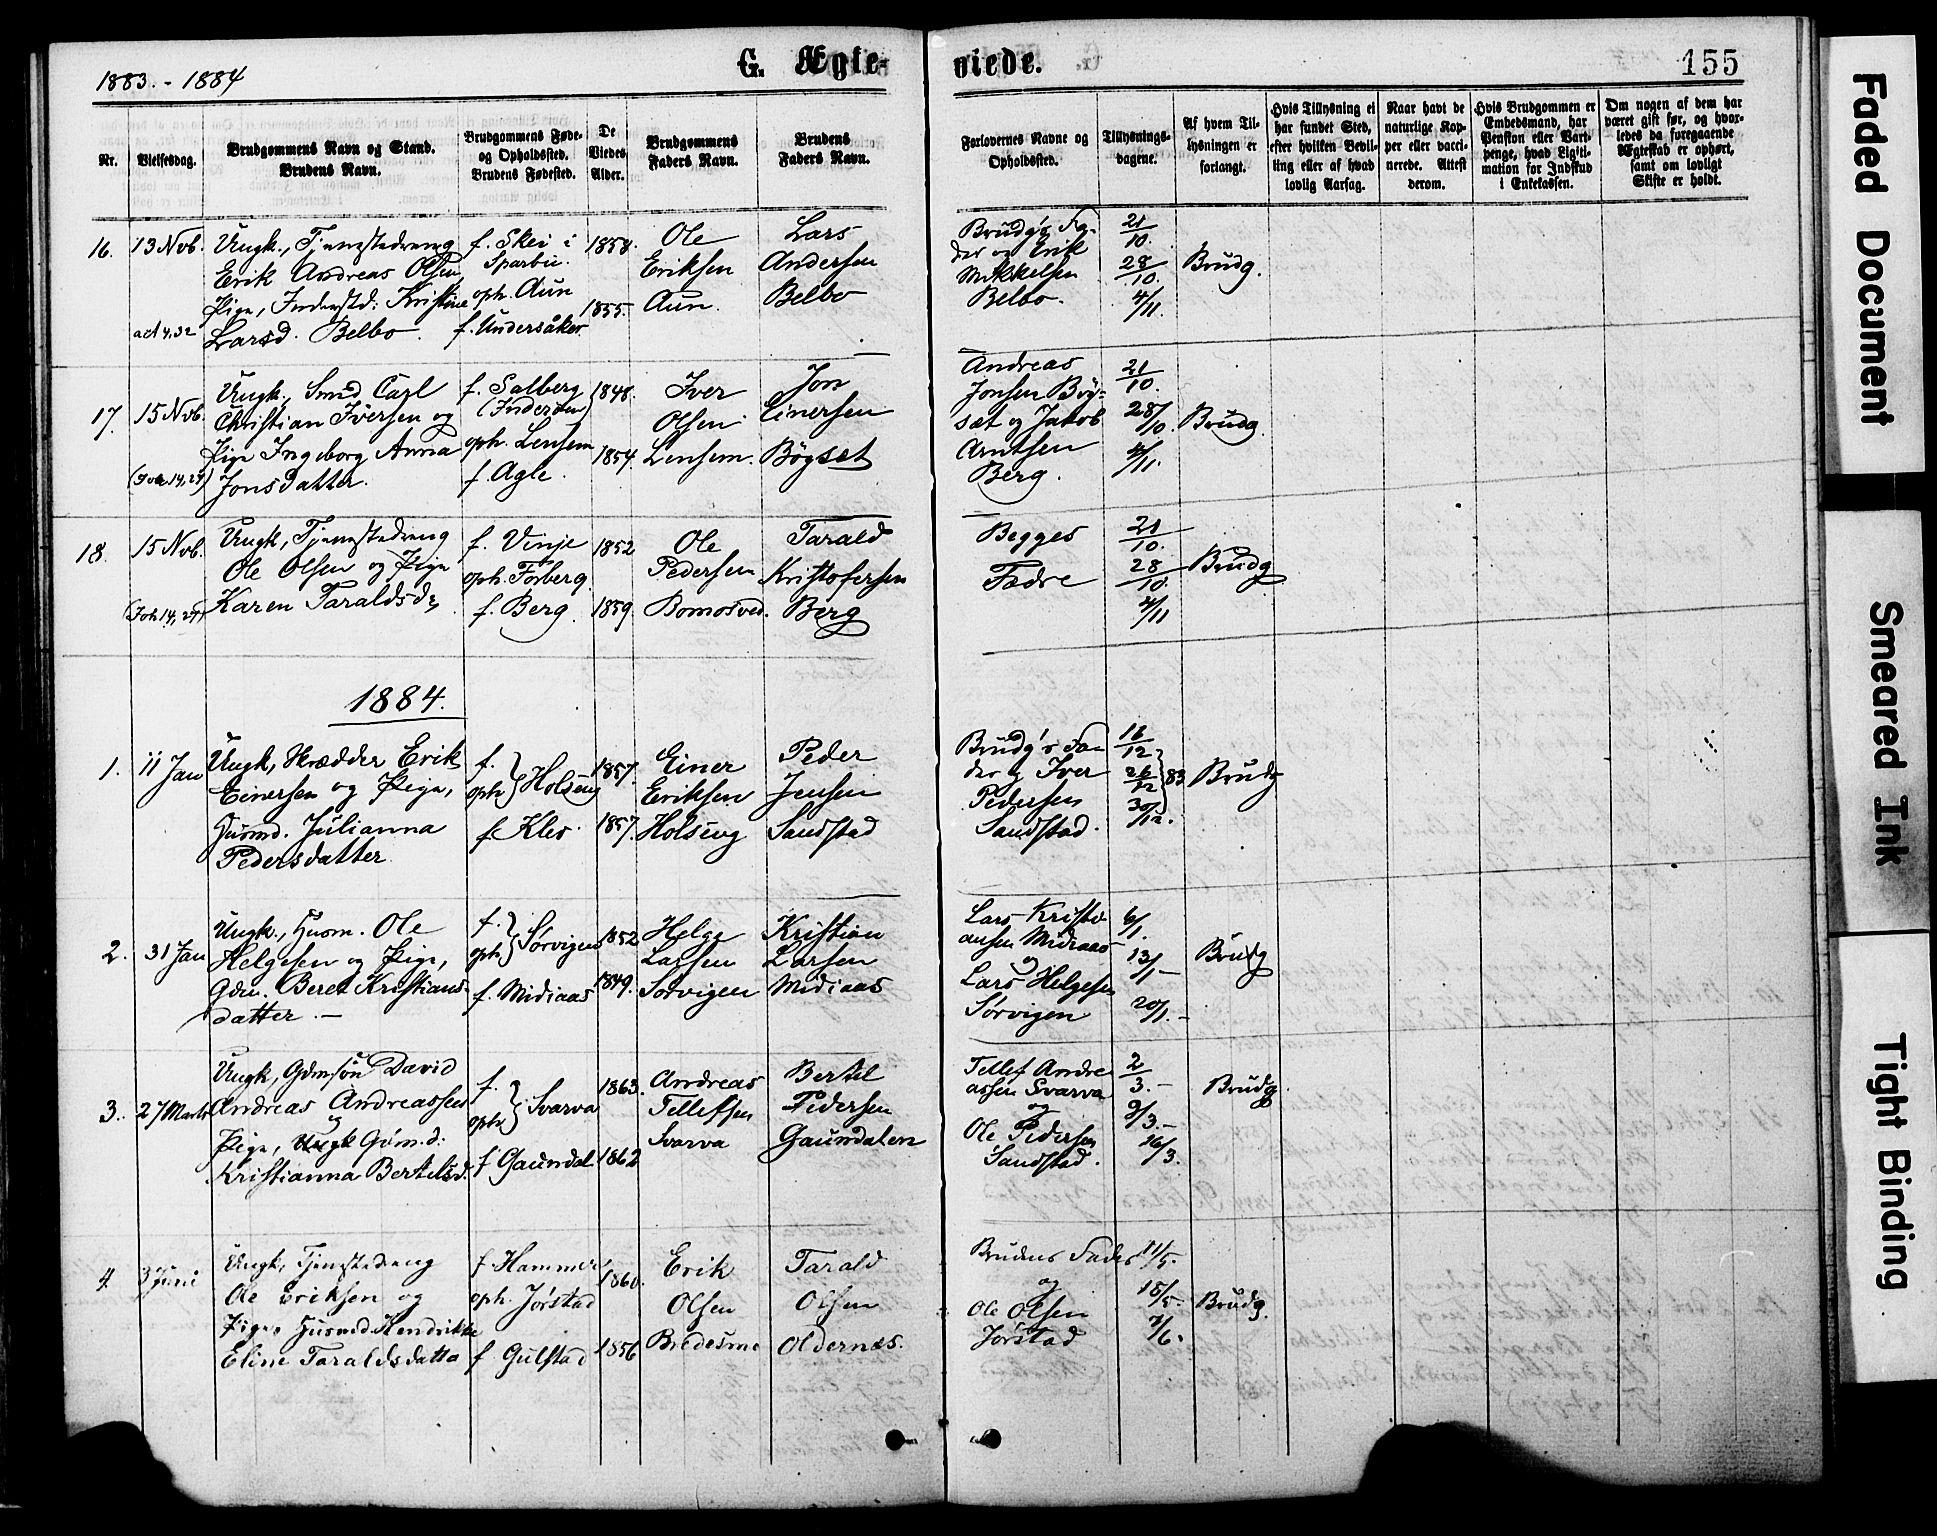 1883. - 1884
G. Ægte-
viede.
155
Nr.
Vielsesdag.
Brudgommens Navn og Stand.
Brudens Navn.
Brudgommens Føde-
og Opholdssted.
Brudens Fødested.
De
Viedes
Alder.
Brudgommens
Faders Navn.
Brudens
Faders Navn.
Forlovernes Navne og
Opholdssted.
Tillysnings-
dagene.
Af hvem Til-
lysningen er
forlangt.
Hvis Tillysning ei
har fundet Sted,
efter hvilken Bevil-
ling eller af hvad
lovlig Aarsag.
Naar havt de
naturlige Kop-
per eller vacci-
nerede. Attest
derom.
Hvis Brudgommen er
Embedsmand, har
Pension eller Vart-
penge, hvad Ligiti-
mation for Indskud
i Enkekassen.
Om nogen af dem har
været gift før, og hvor-
ledes da foregaaende
Ægteskab er ophørt,
samt om lovligt
Skifte er holdt.
16.
13 Nob.
act 4,32
Ungk., Tjenestedreng
Erik Andreas Olsen
Pige, Inderstd: Kristine
Larsd. Belbo.
f. Skei i
Sparbu.
oph. Aun
f. Undersåker
1858.
1855.
Ole
Eriksen
Aun.
Lars
Andersen
Belbo
Brudg's Fa-
der og Erik
Mikkelsen
Belbo.
21/10.
28/10.
4/11.
Brudg.
17.
15 Nob.
(Joh 14,27)
Ungk, Smed Carl
Christian Iversen og
Pige Ingeborg Anna
Jonsdatter.
f. Salberg
(Inderøen)
oph. Lensem
f. Agle.
1848.
1854.
Iver
Olsen
Lensem.
Jon
Einersen
Bögset
Andreas
Jonsen Bög-
sæt og Jakob
Arntsen
Berg.
21/10.
28/10.
4/11.
Brudg.
18.
15 Nob.
(Joh 14,27)
Ungk, Tjenestedreng
Ole Olsen og Pige
Karen Taraldsd:
f. Vinje
oph. Forberg
f. Berg.
1852
1859.
Ole
Pedersen
Bomosved.
Tarald
Kristofersen
Berg
Begges
Fædre
21/10.
28/10.
4/11
Brudg
1884.
1.
11 Jan
Ungk, Hrædder Erik
Einersen og Pige,
Husmd. Julianna
Pedersdatter.
f.
oph } Holseng
f Klev.
1857.
1857.
Einer
Eriksen
Holseng
Peder
Jensen
Sandstad
Brudg's Fa-
der og Iver
Pedersen
Sandstad.
16/12
26/12 } 83
30/12.
Brudg
2.
31 Jan
Ungk., Husm. Ole
Helgesen og Pige,
Gdm. Beret Kristians-
datter. —
f.
oph } Sørvigen
f. Midiaas
1852
1849.
Helge
Larsen
Sørvigen
Kristian
Larsen
Midiaas
Lars Kristi-
ansen Midiaas
og
Lars Helgesen
Sørvigen
6/1.
13/1 —
20/1. —
Brudg
3.
27 Marts
Ungk, Gdmsøn David
Andreas Andreassen
og
Pige, Gdm.d:
Kristianna Bertelsd:
f.
oph } Svarva
f Gaundal
1863.
1862
Andreas
Tellefsen
Svarva
Bertel
Pedersen
Gaundalen
Tellef Andre-
assen Svarva
og
Ole Pedersen
Sandstad.
2/3. —
9/3. —
16/3.
Brudg.
4.
3 Juni
Ungk, Tjenestedreng
Ole Eriksen og
Pige, Husmd. Hendrikke
Eline Taraldsdatta
f. Hammer,
oph. Jørstad
f Gulstad
1860.
1856
Erik
Olsen
Bredesmo
Tarald
Olsen
Oldernæs.
Brudens Fader
og
Ole Olsen
Jørstad
11/5.
18/5.
1/6.
Brudg.
Faded Document
Smeared Ink
Tight Binding